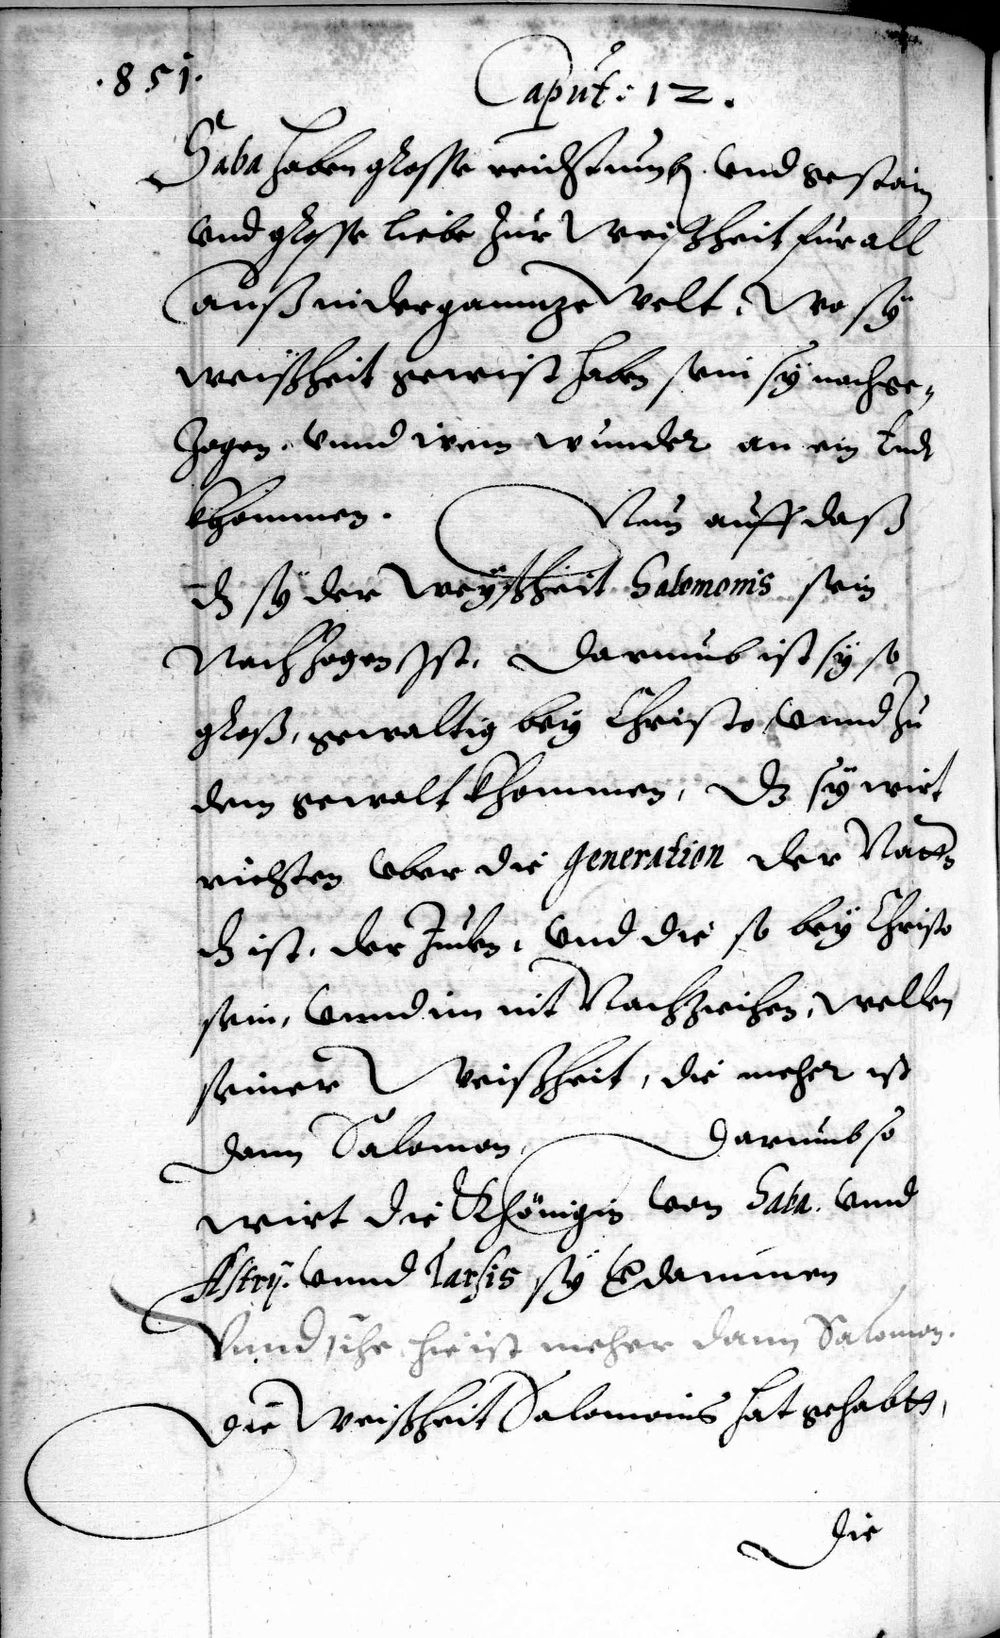 .851.
Caput: 12.
Saba haben grosse reichtumb. vnd gestain
vnd grosse liebe zur Weyßheit fur all
auß in der gannze Welt. Wo sy
weißheit gewist haben sein sy nachge-
zogen. vnnd irem wunder an ein Endt
khommen. Nun auff daß
dz sy der Weyßheit Salomonis sein
Nachzogen Ist. Darumb ist sy so
groß, gewaltig bey Christo, vnnd zu
dem gewalt khommen, Dz sy wirt
richten vber die generation der Natt.
dz ist. der Juden. vnd die so bey Christo
sein, vnnd im nit Nachziehen, wellen
seiner Weißheit, die meher ist
dann Salomon. Darumb so
wirt die Khönigin von Saba. vnnd
Astrij. vnnd Tarsis sy verdammen
Vnnd sihe hie ist meher dann Salomon.
Die Weißheit Salomonis hat gehabtt,
Die